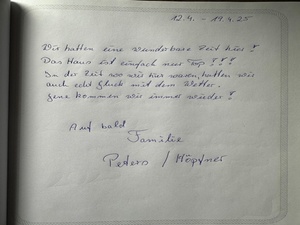 12.4. - 19.4.25
Wir hatten eine wunderbare Zeit hier!
Das Haus ist einfach nur Top!!!
In der Zeit wo wir hier waren, hatten wir
auch echt Glück mit dem Wetter.
Gerne kommen wir immer wieder!
Auf bald
Familie
Peters / Höptner